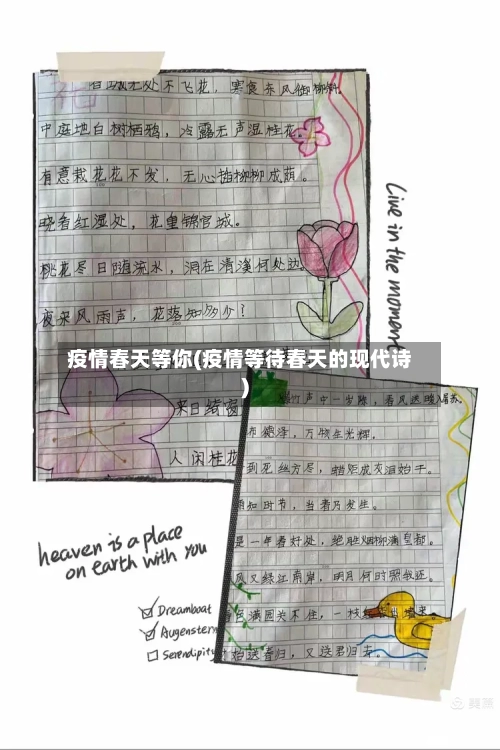 春城无处不飞花，寒食东风御柳斜。
中庭地白树栖鸦，冷露无声湿桂花。
有意栽花花不发，无心插柳柳成荫。
晓看红湿处，花重锦官城。
桃花尽日随流水，洞在清溪何处边。
夜来风雨声，花落知多少？
来日绮窗
人闲桂花
Live in the moment
疫情春天等你(疫情等待春天的现代诗
)
竹声中一岁除，春风送暖入屠苏
布德泽，万物生光辉。
到死丝方尽，蜡炬成灰泪始干。
雨知时节，当春乃发生。
是一年春好处，绝胜烟柳满皇都。
风又绿江南岸，明月何时照我还。
色满园关不住，一枝
始送春归，又送君归去。
heaven is a place
on earth with you
Dreamboat
Augenstern
Serendipity
美篇